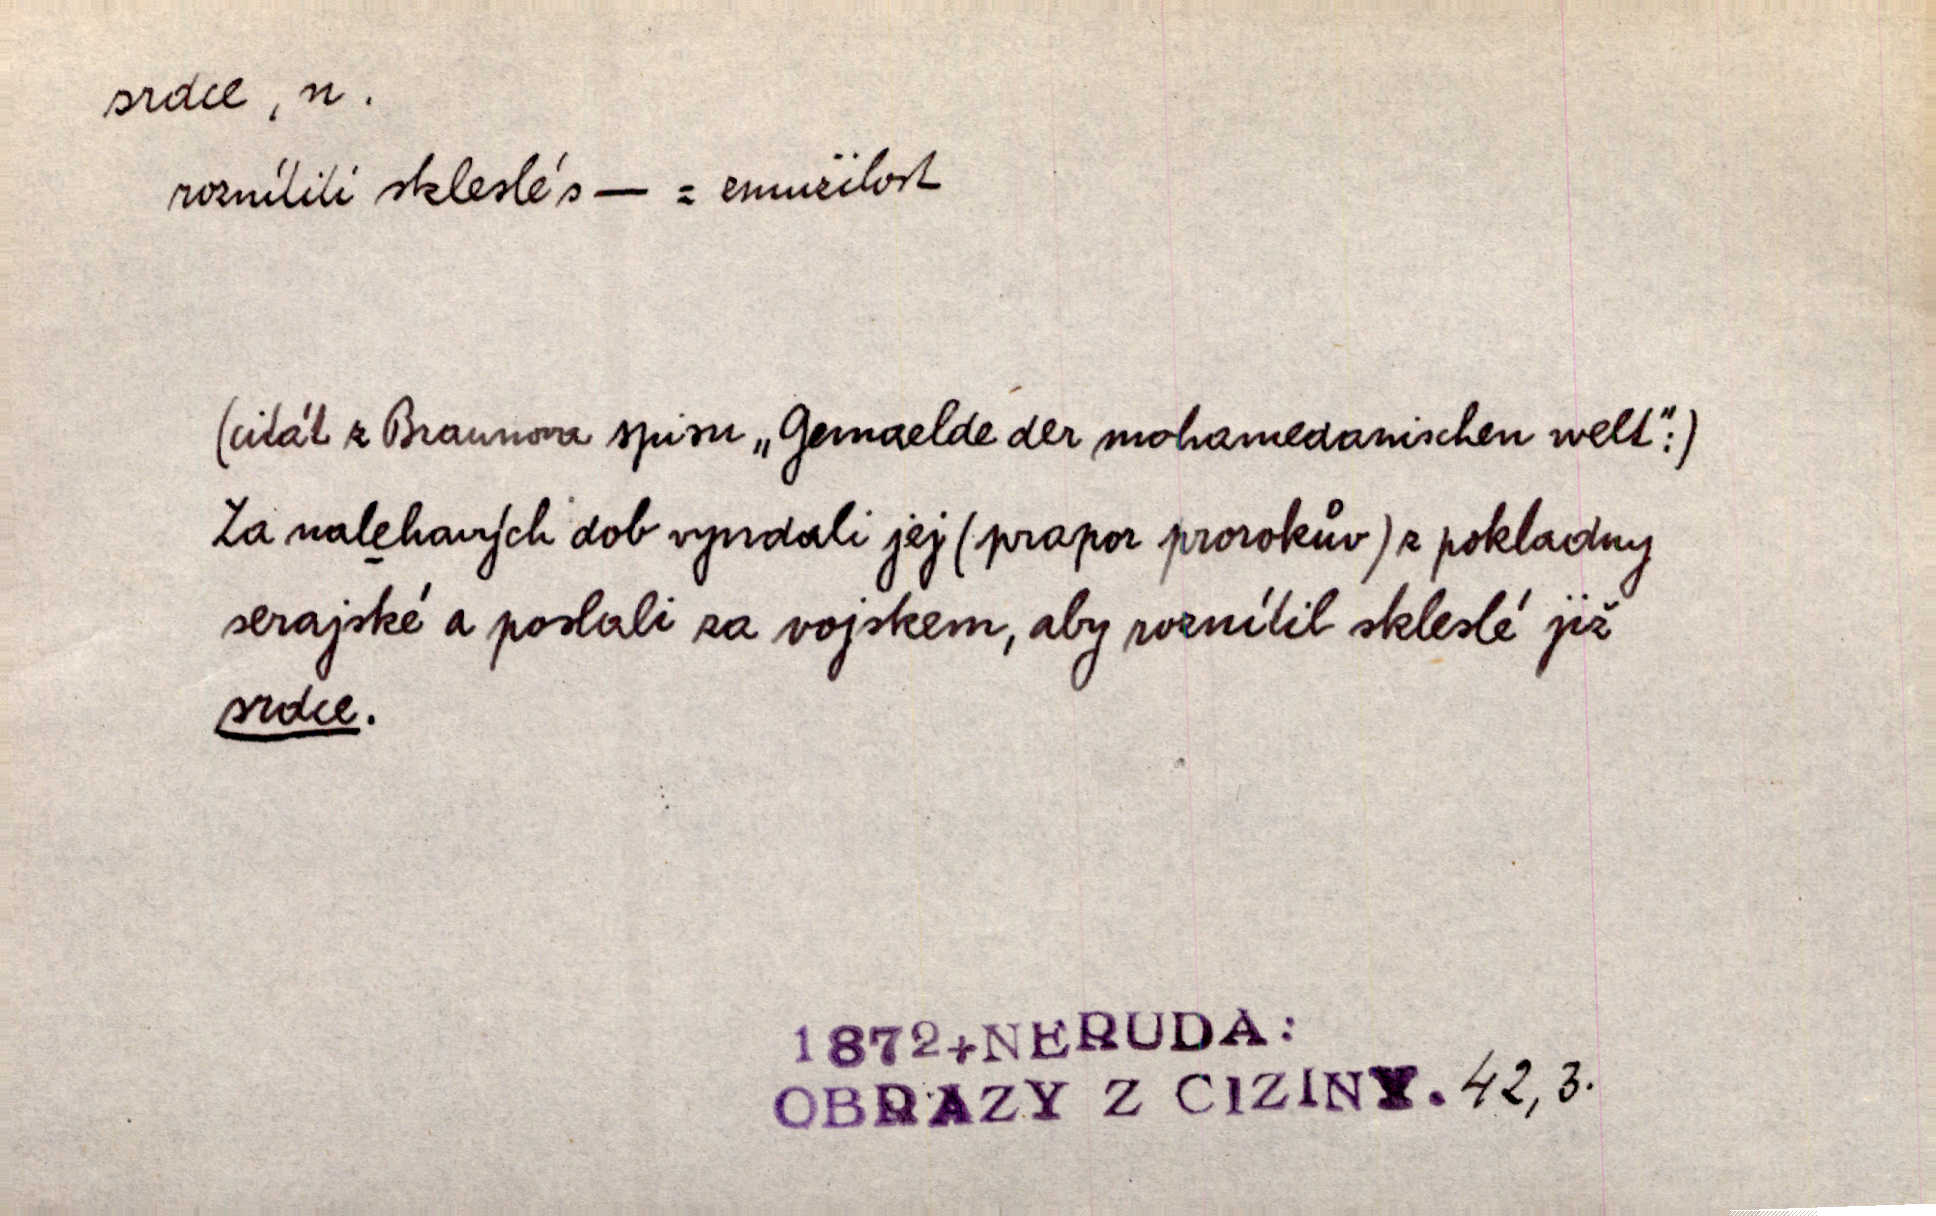 srdce, n.
roznítiti skleslé s — = zmužilost
(citát z Braunova spisu „Gemaelde der mohamedanischen welt":)
Za nalehavých dob vyndali jej (prapor prorokův) z pokladny
serajské a poslali za vojskem, aby roznítil skleslé již
srdce.
1872+NERUDA:
OBRAZY Z CIZINY. 42, 3.